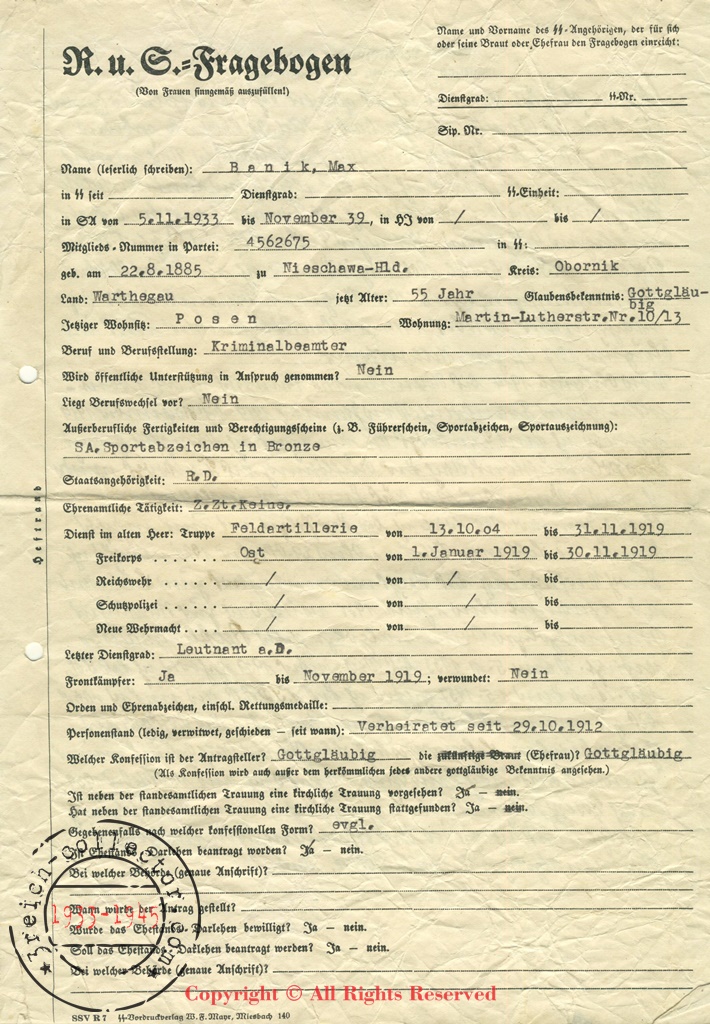 Name und Vorname des SS-Angehörigen, der für sich
oder seine Braut oder Ehefrau den Fragebogen einreicht:
R. u. S.-Fragebogen
(Von Frauen sinngemäß auszufüllen!)
Dienstgrad: SS-Nr.
Sip. Nr.
Name (leserlich schreiben): B a n i k, Max
in SS seit Dienstgrad: SS-Einheit:
in SA von 5.11.1933 bis November 39, in HJ von / bis /
Mitglieds-Nummer in Partei: 4562675 in SS:
geb. am 22.8.1885 zu Nieschawa-Hld. Kreis: Obornik
Land: Warthegau jetzt Alter: 55 Jahr Glaubensbekenntnis: Gottgläu-
big
Jetziger Wohnsitz: P o s e n Wohnung: Martin-Lutherstr.Nr.10/13
Beruf und Berufsstellung: Kriminalbeamter
Wird öffentliche Unterstützung in Anspruch genommen? Nein
Liegt Berufswechsel vor? Nein
Außerberufliche Fertigkeiten und Berechtigungsscheine (z. B. Führerschein, Sportabzeichen, Sportauszeichnung):
SA.Sportabzeichen in Bronze
Staatsangehörigkeit: R.D.
Ehrenamtliche Tätigkeit: Z.Zt.Keine.
Dienst im alten Heer: Truppe Feldartillerie von 13.10.04 bis 31.11.1919
Freikorps . . . . . . . Ost von 1.Januar 1919 bis 30.11.1919
Reichswehr . . . . . . / von / bis
Schutzpolizei . . . . . / von / bis
Neue Wehrmacht . . . . / von / bis
Letzter Dienstgrad: Leutnant a.D.
Frontkämpfer: Ja bis November 1919; verwundet: Nein
Orden und Ehrenabzeichen, einschl. Rettungsmedaille:
Personenstand (ledig, verwitwet, geschieden – seit wann): Verheiratet seit 29.10.1912
Welcher Konfession ist der Antragsteller? Gottgläubig die zukünftige Braut (Ehefrau)? Gottgläubig
(Als Konfession wird auch außer dem herkömmlichen jedes andere gottgläubige Bekenntnis angesehen.)
Ist neben der standesamtlichen Trauung eine kirchliche Trauung vorgesehen? Ja – nein.
Hat neben der standesamtlichen Trauung eine kirchliche Trauung stattgefunden? Ja – nein.
Gegebenenfalls nach welcher konfessionellen Form? evgl.
Ist Ehestands-Darlehen beantragt worden? Ja – nein.
Bei welcher Behörde (genaue Anschrift)?
Wann wurde der Antrag gestellt?
Wurde das Ehestands-Darlehen bewilligt? Ja – nein.
Soll das Ehestands-Darlehen beantragt werden? Ja – nein.
Bei welcher Behörde (genaue Anschrift)?
SSV R 7 SS-Vordruckverlag W. F. Mayr, Miesbach 140
Heftrand
3reich-collector.com
1933-1945
Copyright © All Rights Reserved